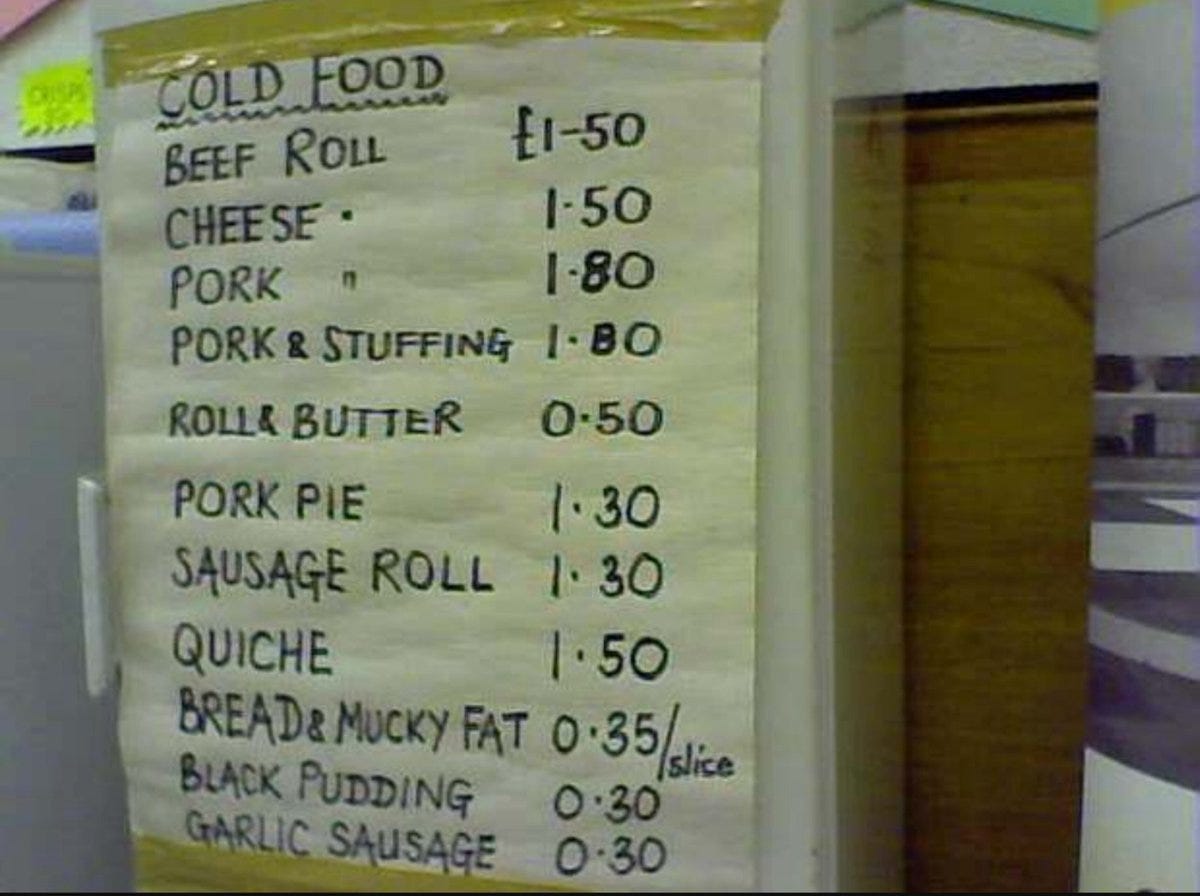 CRISPS
COLD FOOD
BEEF ROLL £1-50
CHEESE " 1·50
PORK " 1·80
PORK & STUFFING 1·80
ROLL & BUTTER 0·50
PORK PIE 1·30
SAUSAGE ROLL 1·30
QUICHE 1·50
BREAD & MUCKY FAT 0·35/slice
BLACK PUDDING 0·30
GARLIC SAUSAGE 0·30